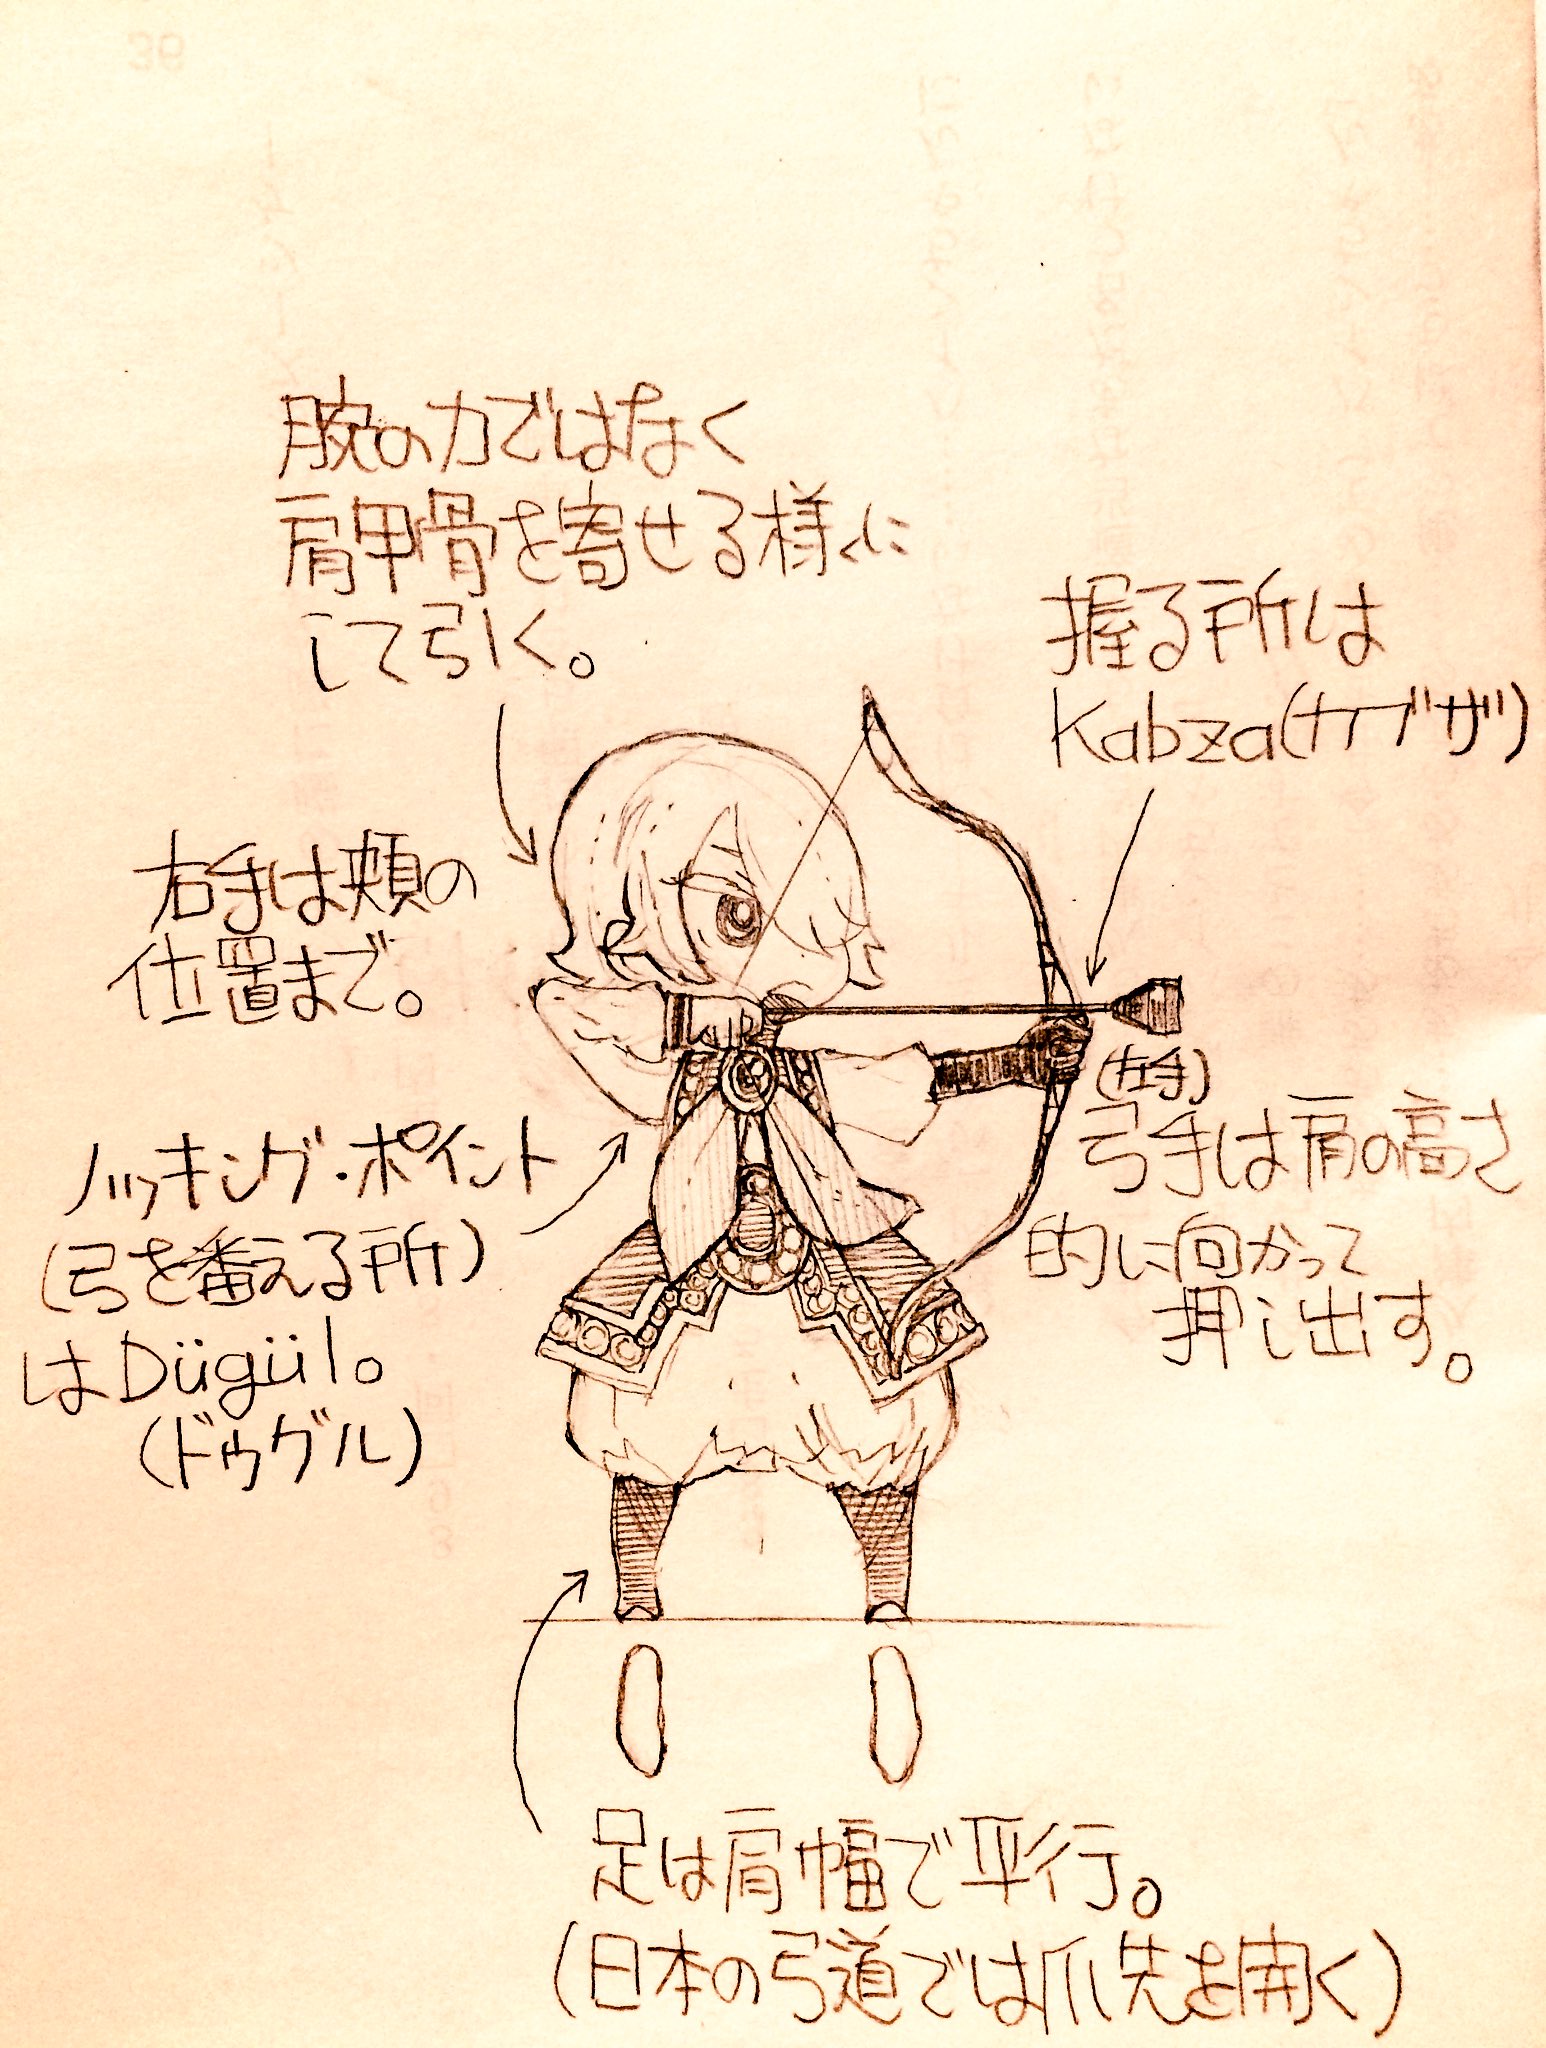 腕の力ではなく
肩甲骨を寄せる様に
して引く。
握る所は
Kabza(カブザ)
右手は頬の
位置まで。
ノッキング・ポイント
(弓を番える所)
はDügül。
(ドゥグル)
(左手)
弓手は肩の高さ
的に向かって
押し出す。
足は肩幅で平行。
(日本の弓道では爪先を開く)
36